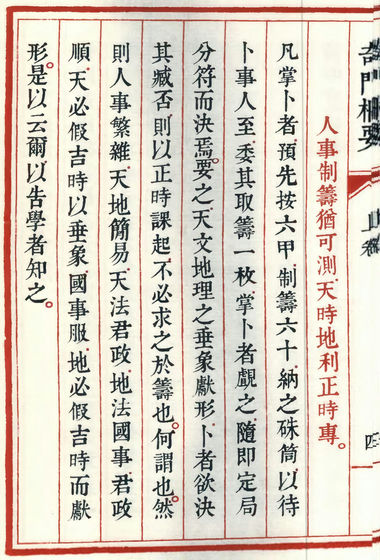 人事制籌猶可測、天時地利正時專。
凡掌卜者預先按六甲制籌六十、納之硃筒以待
卜事人至、委其取籌一枚、掌卜者覷之、隨即定局
分符而決焉。要之、天文地理之垂象獻形、卜者欲決
其臧否、則以正時課起、不必求之於籌也。何謂也。然
則人事繁雜、天地簡易、天法君政、地法國事、君政
順、天必假吉時以垂象、國事服、地必假吉時而獻
形。是以云爾、以告學者知之。